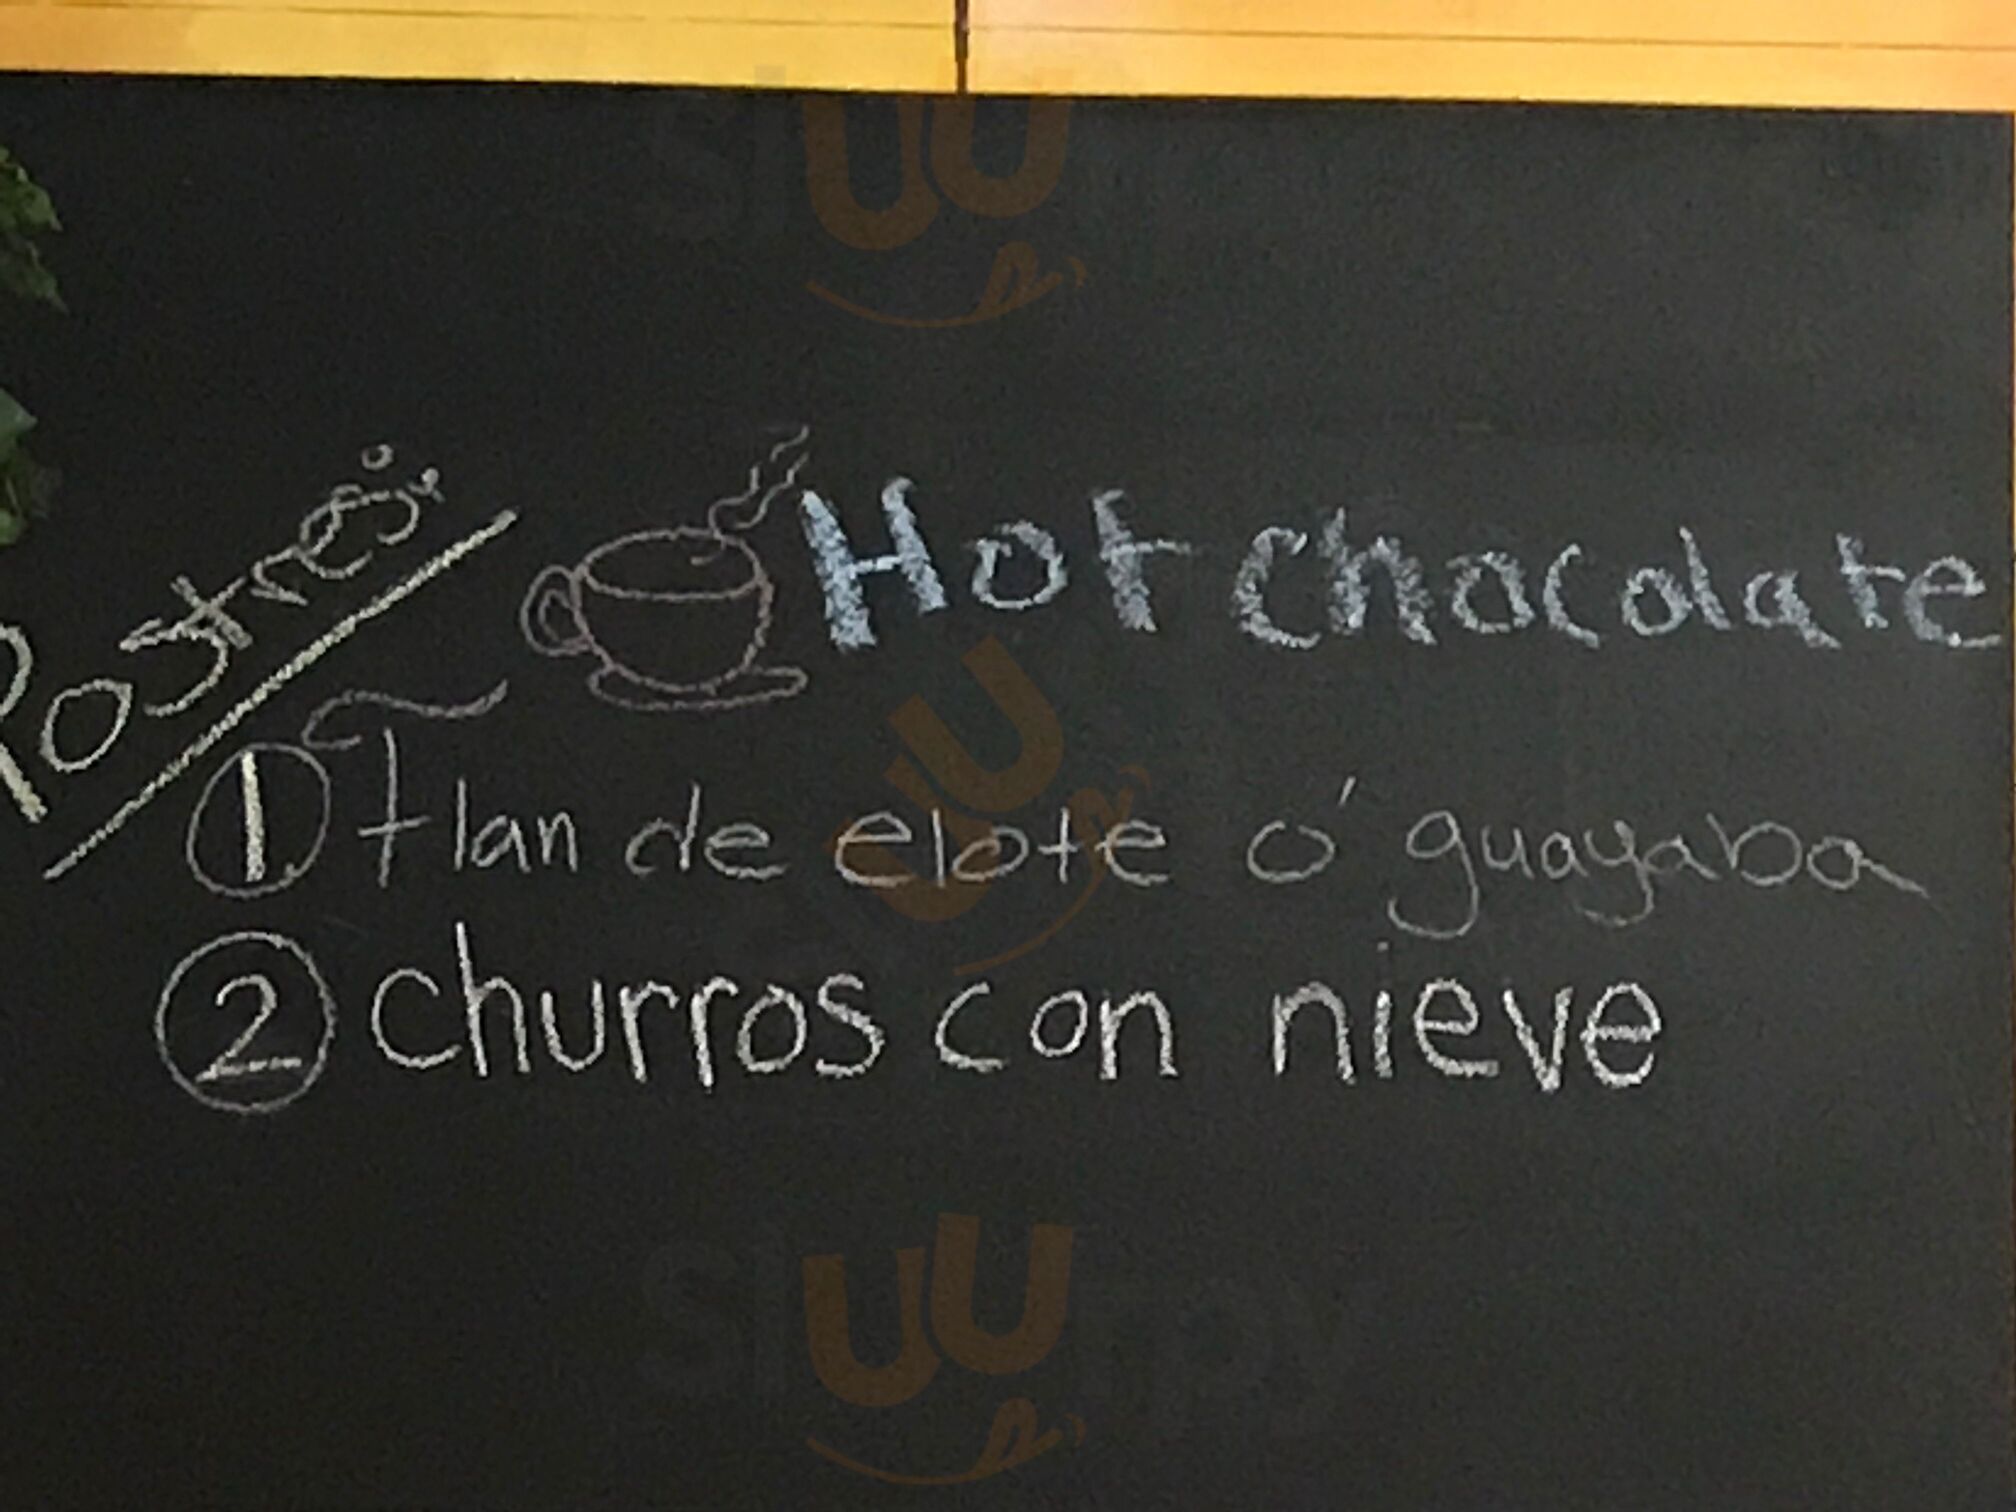 Postres:
Hot chocolate
1 flan de elote ó guayaba
2 churros con nieve